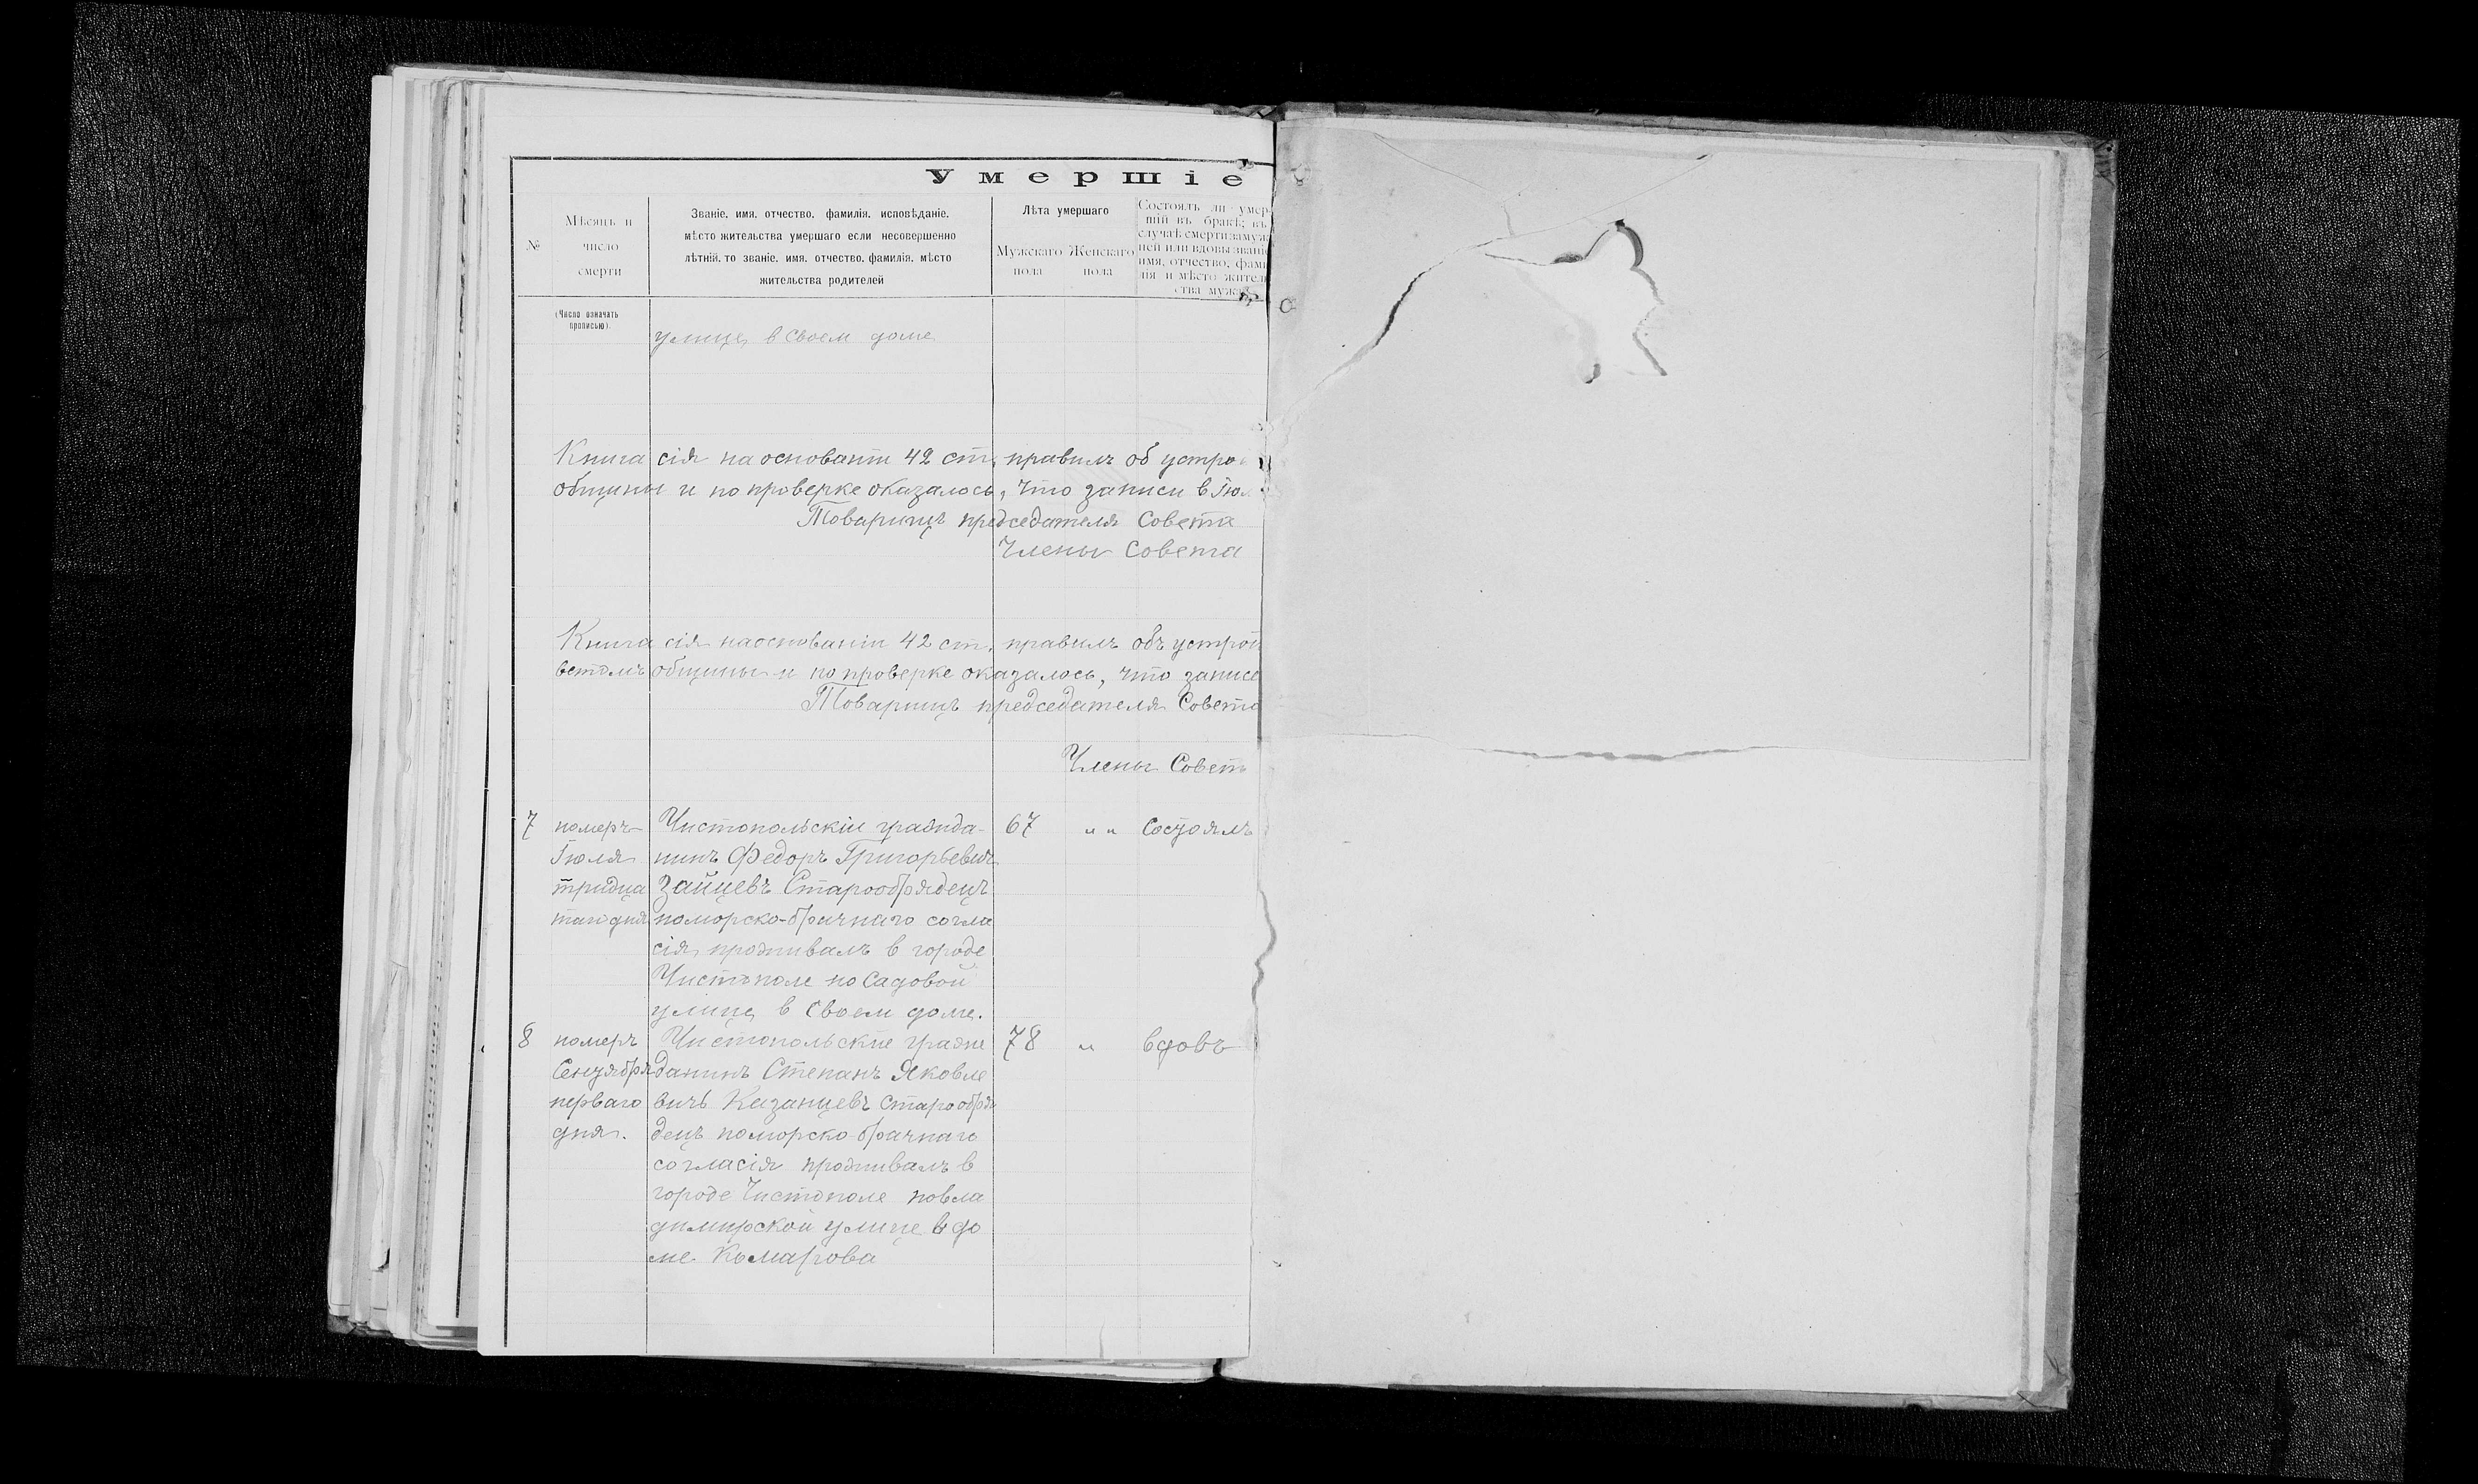 Умершіе
№
Мѣсяцъ и
число
смерти
Званіе, имя, отчество, фамилія, исповѣданіе,
мѣсто жительства умершаго если несовершенно
лѣтній, то званіе, имя, отчество, фамилія, мѣсто
жительства родителей
Лѣта умершаго
Мужскаго
пола
Женскаго
пола
Состоялъ ли умер
шій въ бракѣ; въ
случаѣ смерти замуж
ней или вдовы званіе
имя, отчество, фами
лія и мѣсто жител
ства мужа
(Число означать
прописью).
улице в своем доме
Книга сія на основаніи 42 ст, правилъ об устро
общины и по проверке оказалось, что записи в Іюл
Товарищъ председателя Совета
Члены Совета
Книга сія на основаніи 42 ст. правилъ объ устрой
ветомъ общины и по проверке оказалось, что записе
Товарищъ председателя Совета
Члены Совет
7 померъ Чистопольскіи гражда- 67 " " Состоялъ
Іюля нинъ Федоръ Григорьевич
тридца Зайцевъ Старообрядецъ
таго дня поморско-брачнаго согла
сія, проживалъ в городе
Чистополе по Садовой
улице в Своем доме.
8 померъ Чистопольскіе гражe 78 " вдовъ
Сентября данинъ Степанъ Яковле
перваго вичь Казанцевъ Старообря
дня. децъ поморско-брачнаго
согласія проживалъ в
городе Чистополе повла
димирской улице в до
ме Комарова